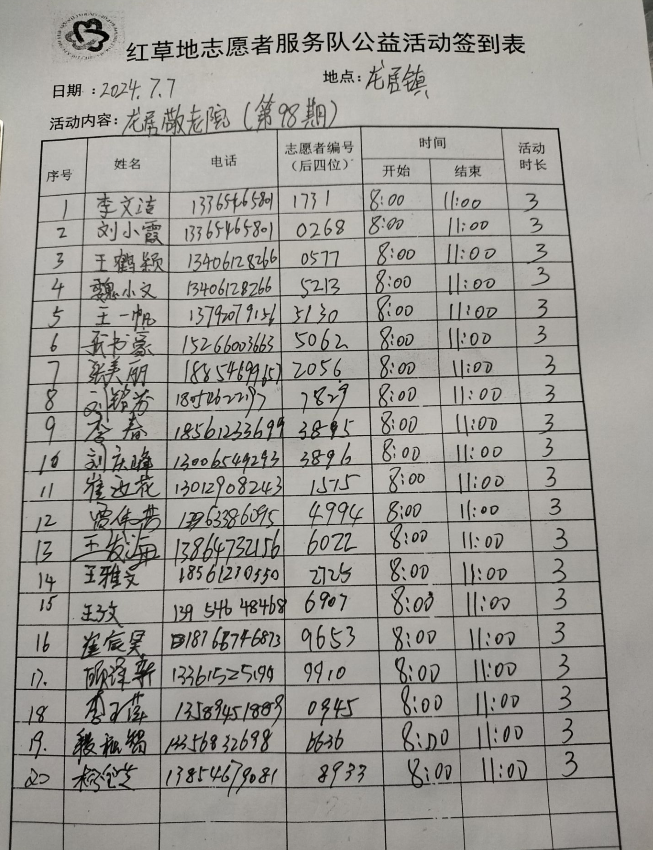 红草地志愿者服务队公益活动签到表
日期：2024.7.7 地点：龙居镇
活动内容：龙居敬老院（第98期）
序号 姓名 电话 志愿者编号（后四位） 时间 开始 结束 活动时长
1 李文洁 13365465801 1731 8:00 11:00 3
2 刘小霞 13365465801 0268 8:00 11:00 3
3 王鹤颖 13406128266 0577 8:00 11:00 3
4 魏小文 13406128266 5213 8:00 11:00 3
5 王一帆 13792079156 5130 8:00 11:00 3
6 张书豪 15266003663 5062 8:00 11:00 3
7 张美丽 18854699657 2056 8:00 11:00 3
8 7829 8:00 11:00 3
9 李春 18561233699 3895 8:00 11:00 3
10 刘庆峰 13006549293 3896 8:00 11:00 3
11 13012908243 1575 8:00 11:00 3
12 4994 8:00 11:00 3
13 王发海 13864732156 6022 8:00 11:00 3
14 王雅文 18561210550 2725 8:00 11:00 3
15 王文 139 546 48468 6907 8:00 11:00 3
16 崔宸昊 18176 9653 8:00 11:00 3
17. 9910 8:00 11:00 3
18 0945 8:00 11:00 3
19. 6636 8:00 11:00 3
20 13854679081 8933 8:00 11:00 3